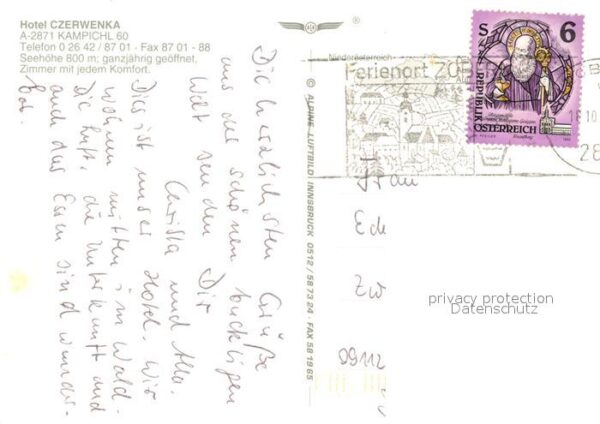 Hotel CZERWENKA
A-2871 KAMPICHL 60
Telefon 0 26 42 / 87 01 - Fax 87 01 - 88
Seehöhe 800 m; ganzjährig geöffnet.
Zimmer mit jedem Komfort.
Die herzlichsten Grüße
aus der schönen buckligen
Welt senden Dir
Christa und Alla.
Dies ist unser Hotel. Wir
wohnen mitten im Wald.
Die Luft, die Unterkunft und
auch das Essen sind wunder-
bar.
© ALPINE LUFTBILD INNSBRUCK 0512 / 58 73 24 · FAX 58 19 65
Niederösterreich
Ferienort ZÖB
18.10
28
S 6
REPUBLIK
ÖSTERREICH
Frau
Ede
Zw
09112
privacy protection
Datenschutz